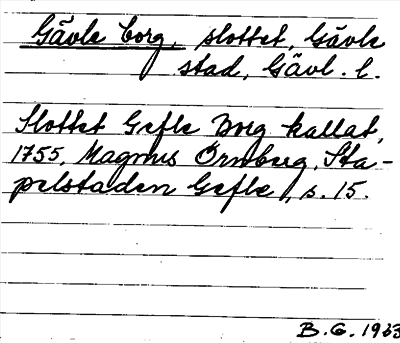 Gävle borg, slottet, Gävle
stad, Gävl. l.
Slottet Gefle Borg kallat,
1755, Magnus Örnberg, Sta-
pelstaden Gefle, s. 15.
B. G. 1963